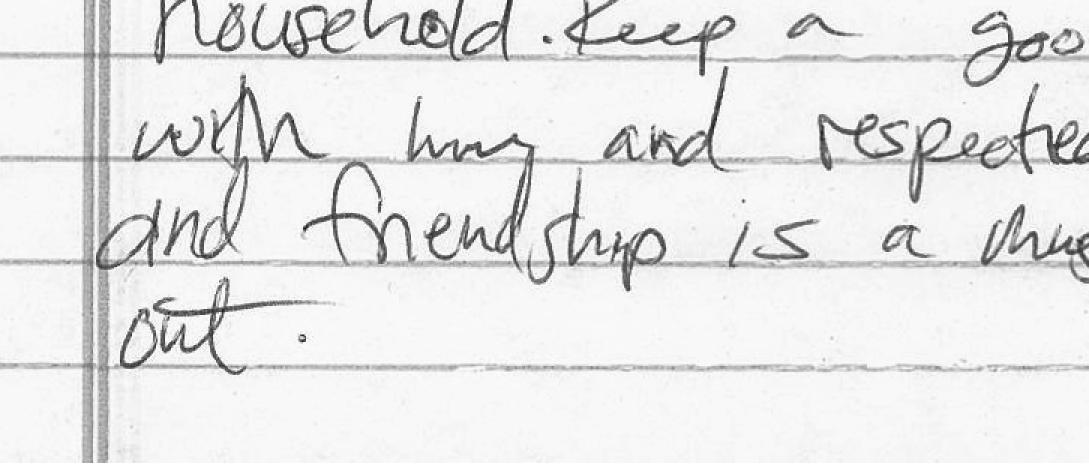 household. Keep a goo
with and respected
and friendship is a
out.